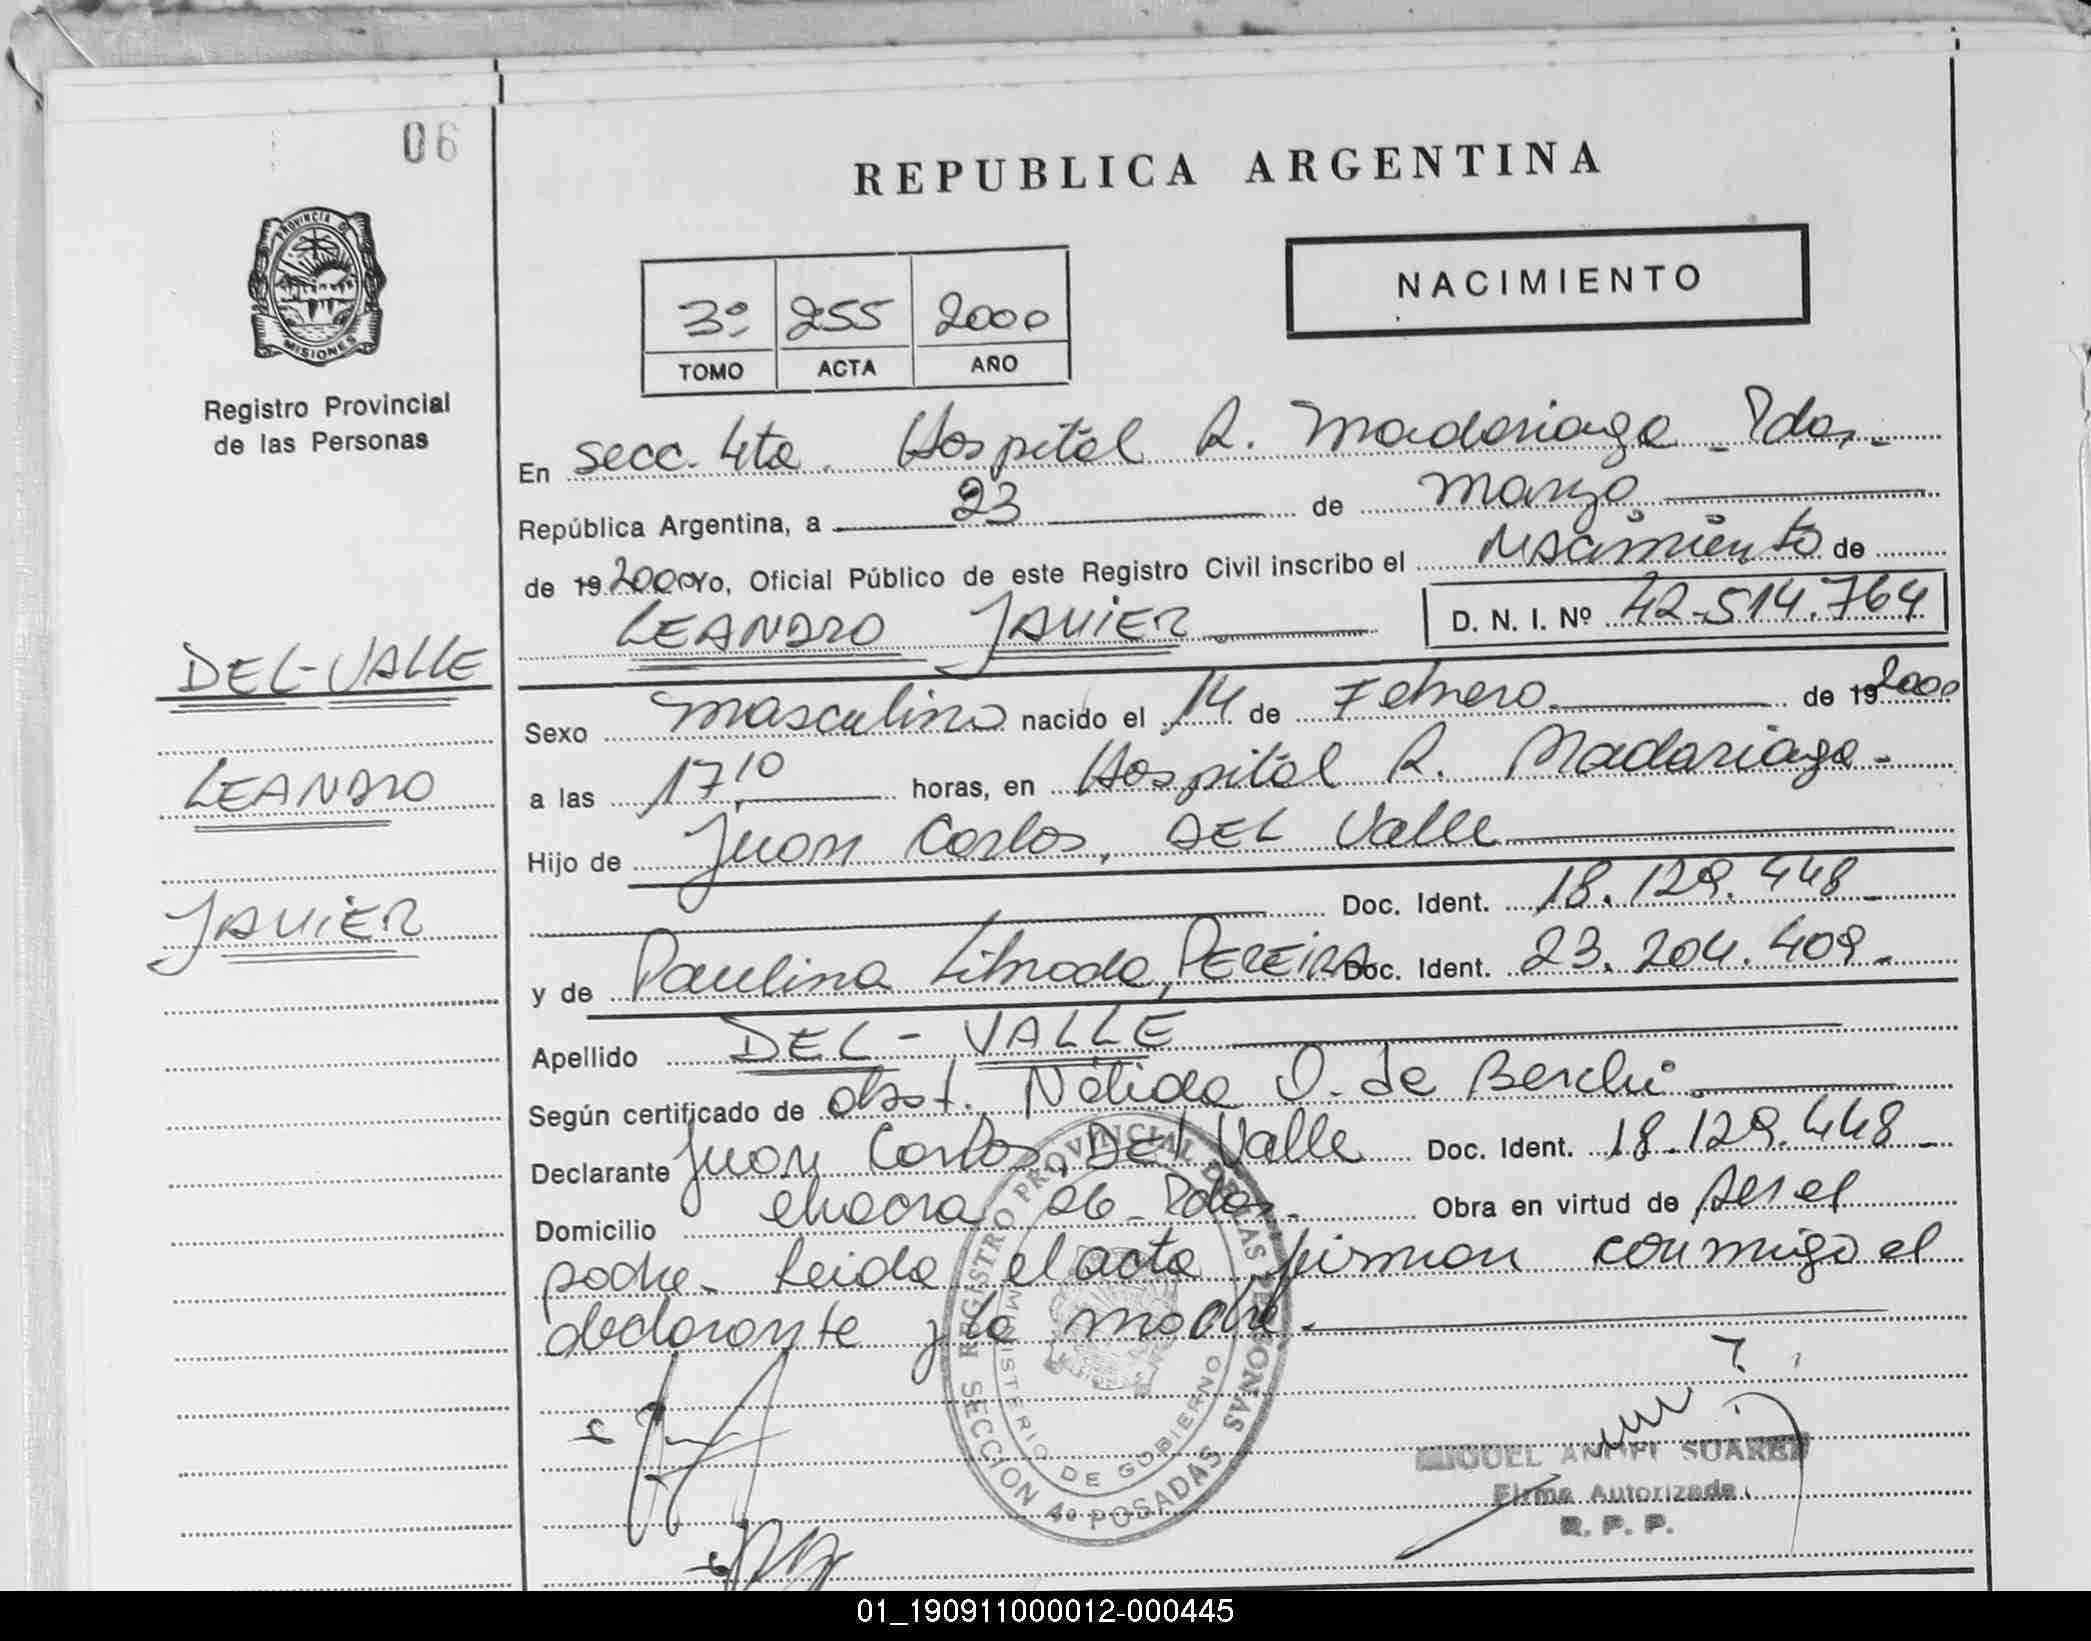 06
REPUBLICA ARGENTINA
PROVINCIA DE
MISIONES
Registro Provincial
de las Personas
NACIMIENTO
3º 255 2000
TOMO ACTA AÑO
En secc. 4ta. Hospital R. Madariaga - Pdas.-
República Argentina, a 23 de Marzo
de 19 2000 Yo, Oficial Público de este Registro Civil inscribo el Nacimiento de
LEANDRO JAVIER D. N. I. Nº 42.514.764
DEL-VALLE
LEANDRO
JAVIER
Sexo Masculino nacido el 14 de Febrero de 19 2000
a las 17,10 horas, en Hospital R. Madariaga-
Hijo de Juan Carlos, DEL Valle
Doc. Ident. 18.129.448-
y de Paulina Librada, PEREIRA Doc. Ident. 23.204.409-
Apellido DEL-VALLE
Según certificado de obst. Nélida O. de Berchi
Declarante Juan Carlos, DEL Valle Doc. Ident. 18.129.448-
Domicilio chacra 06 - Pdas.- Obra en virtud de ser el
padre- Leida el acta firman conmigo el
declarante y la madre.-
REGISTRO PROVINCIAL DE LAS PERSONAS
MINISTERIO DE GOBIERNO
SECCION 4º POSADAS
MIGUEL ANGEL SUAREZ
Firma Autorizada
R. P. P.
01_190911000012-000445